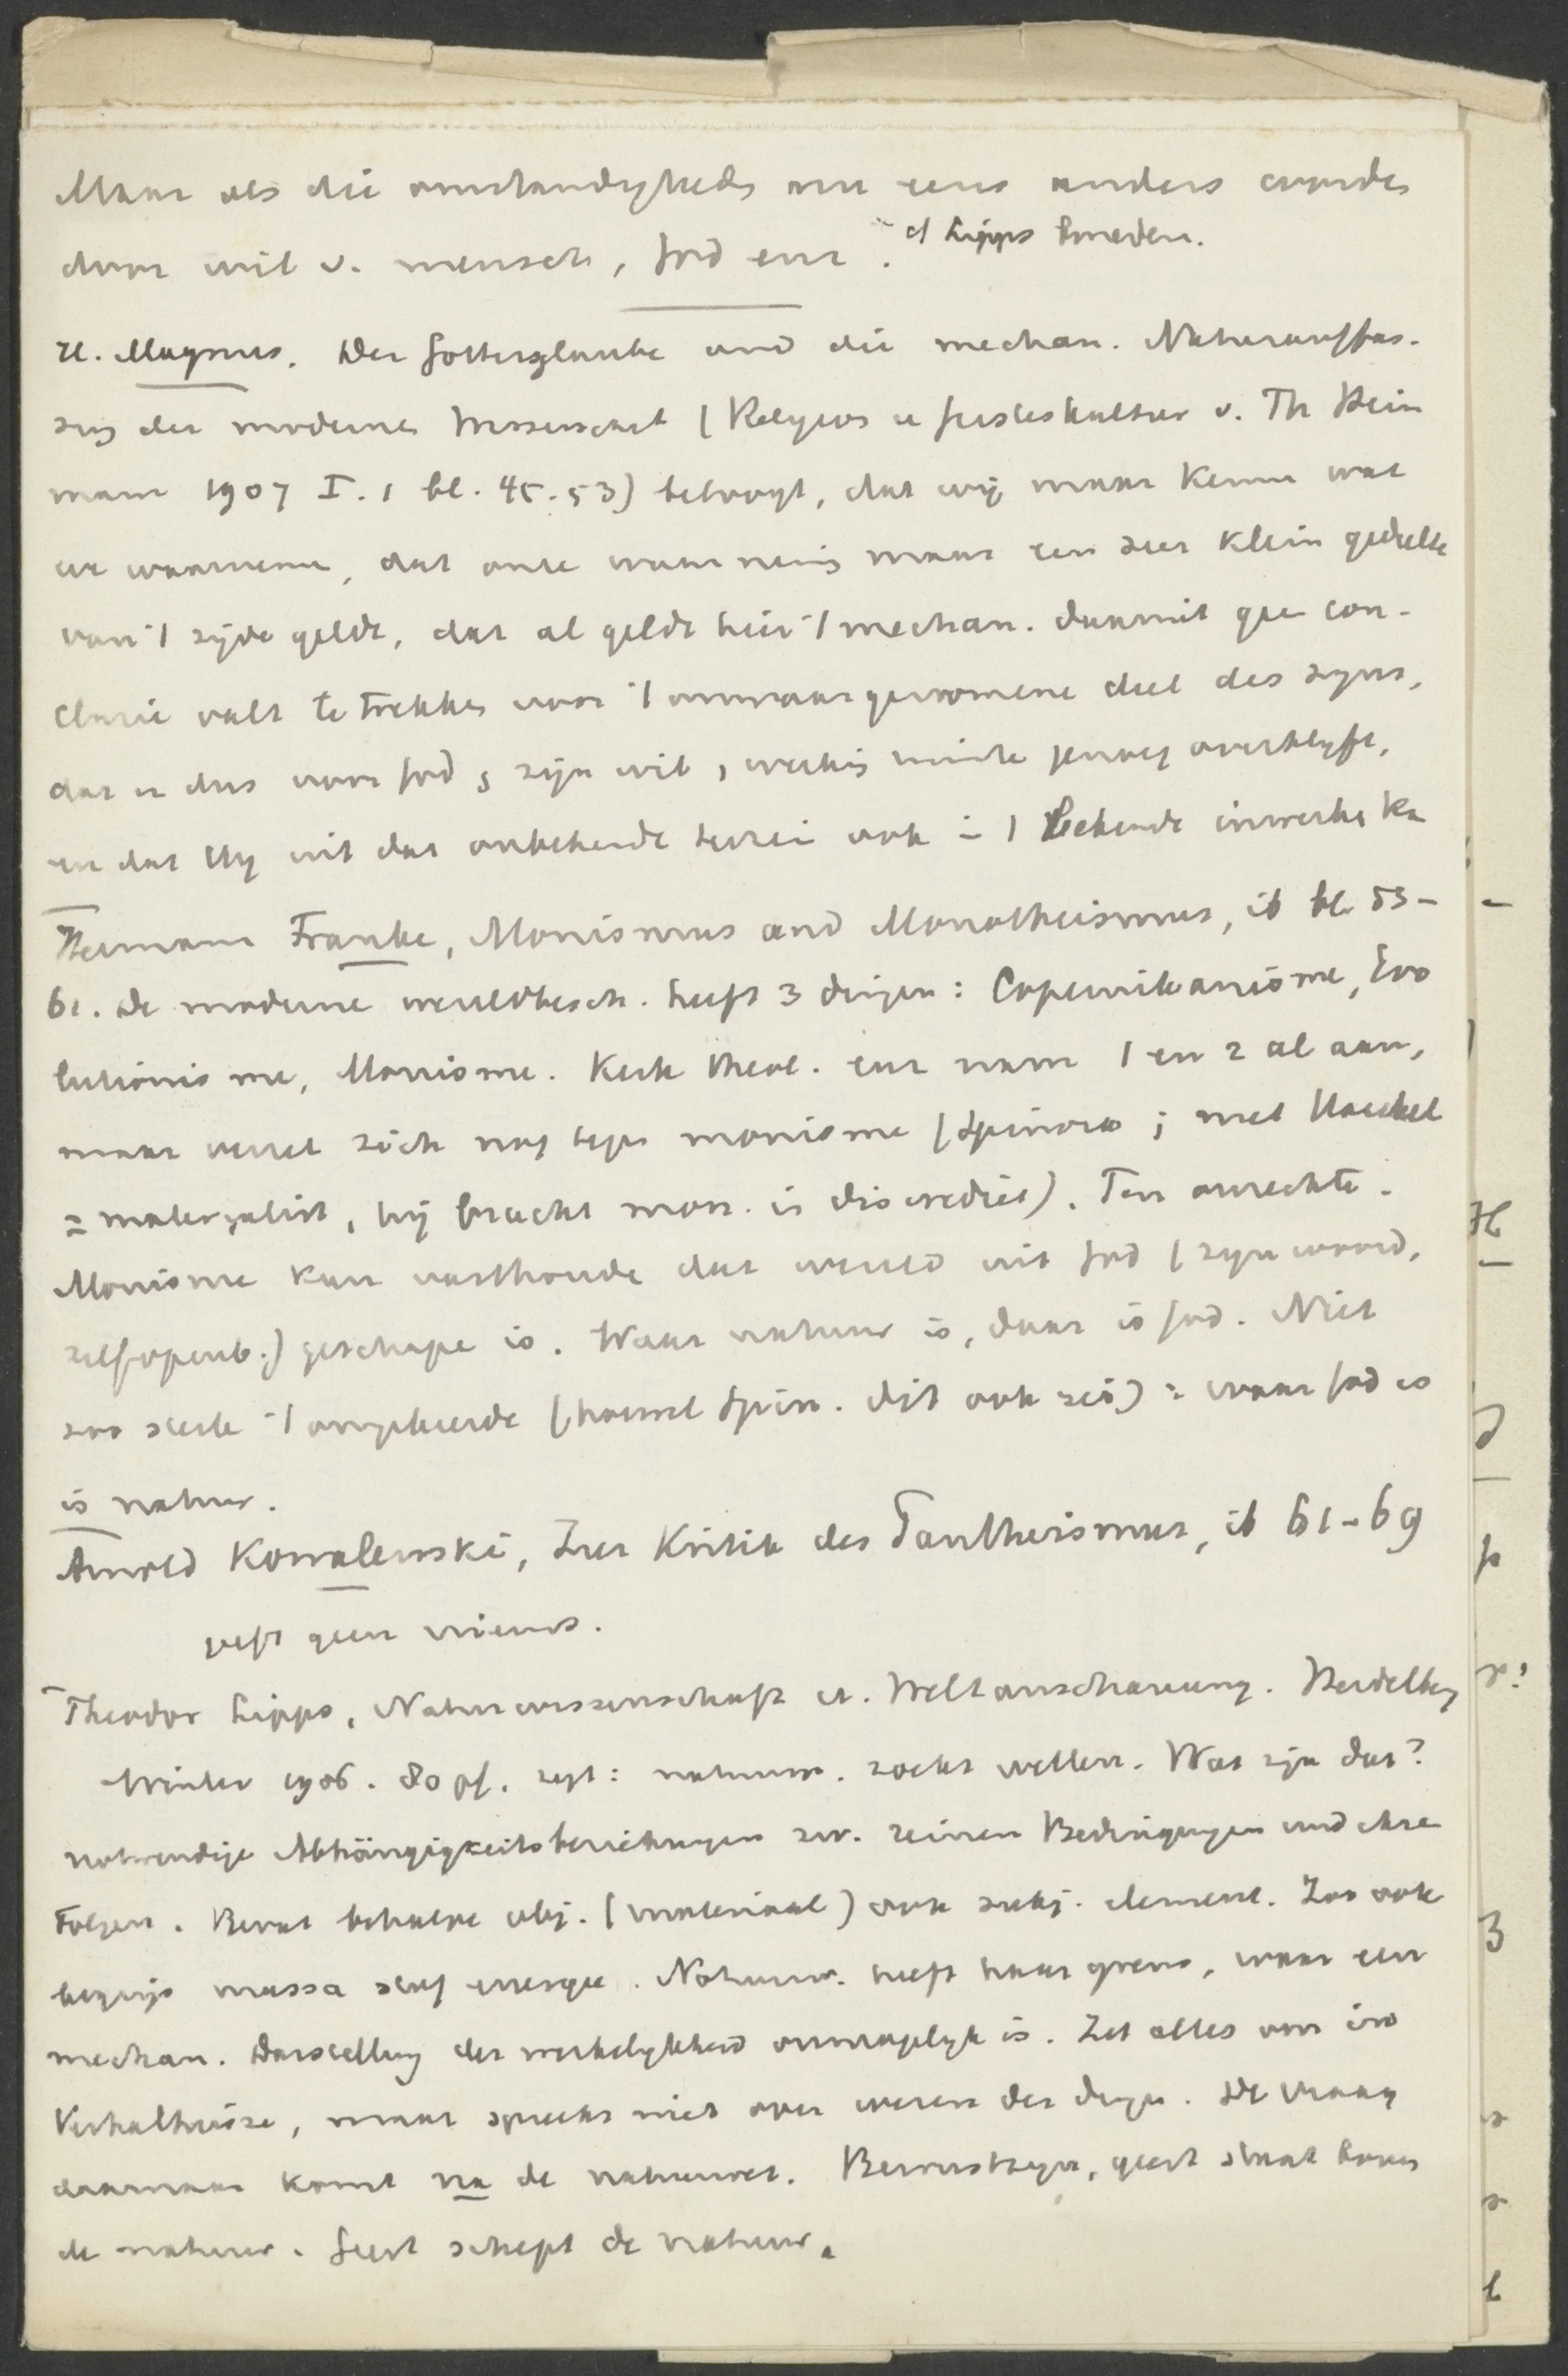 Maar als die omstandigheden nu eens anders worden
door wil v. mensch, God enz. cf Lipps beneden.
H. Magnus. Der Gottesglaube und die mechan. Naturauffas-
sung der modernen Wissenschaft (Religion u Geisteskultur v. Th Stein
mann 1907 I. 1 bl. 45-53) betoogt, dat wij maar kennen wat
we waarnemen, dat onze waarneming maar een zeer klein gedeelte
van 't zijde geldt, dat al geldt hier 't mechan. daaruit geen con-
clusie valt te trekken voor 't onwaargenomene deel des zijns,
dat er dus voor God, zijn wil, werking ruimte genoeg overblijft,
en dat Hij uit dat onbekende terrein ook in 't bekende inwerken kan
Hermann Franke, Monismus und Monotheismus, ib bl 53-
61. De moderne wereldbesch. heeft 3 dingen: Copernikanisme, Evo
lutionisme, Monisme. Kerk theol. enz nam 1 en 2 al aan,
maar verzet zich nog tegen monisme (Spinoza; met Haeckel
= materialist, hij bracht mon. in discrediet). Ten onrechte.
Monisme kan vasthouden dat wereld uit God (zijn woord,
zelfopenb.) geschapen is. Waar natuur is, daar is God. Niet
zoo zeer 't omgekeerde (hoewel Spin. dit ook zei): waar God is
is natuur.
Arnold Kowalewski, Zur Kritik des Pantheismus, ib 61-69
geeft geen nieuws.
Theodor Lipps, Naturwissenschaft u. Weltanschauung. Heidelberg
Winter 1906. 80 pf. zegt: natuurw. zoekt wetten. Wat zijn dat?
notwendige Abhängigkeitsbeziehungen zw. reinen Bedingungen und ihren
Folgen. Bevat behalve obj. (materiaal) ook subj. element. Zoo ook
begrip massa stof energie. Natuurw. heeft haar grens, waar een
mechan. Darstellung der werkelijkheid onmogelijk is. Zet alles om in
Verhältnisse, maar spreekt niet over wezen der dingen. De vraag
daarnaar komt na de natuurwet. Bewustzijn, geest staat boven
de natuur. Geest schept de natuur.